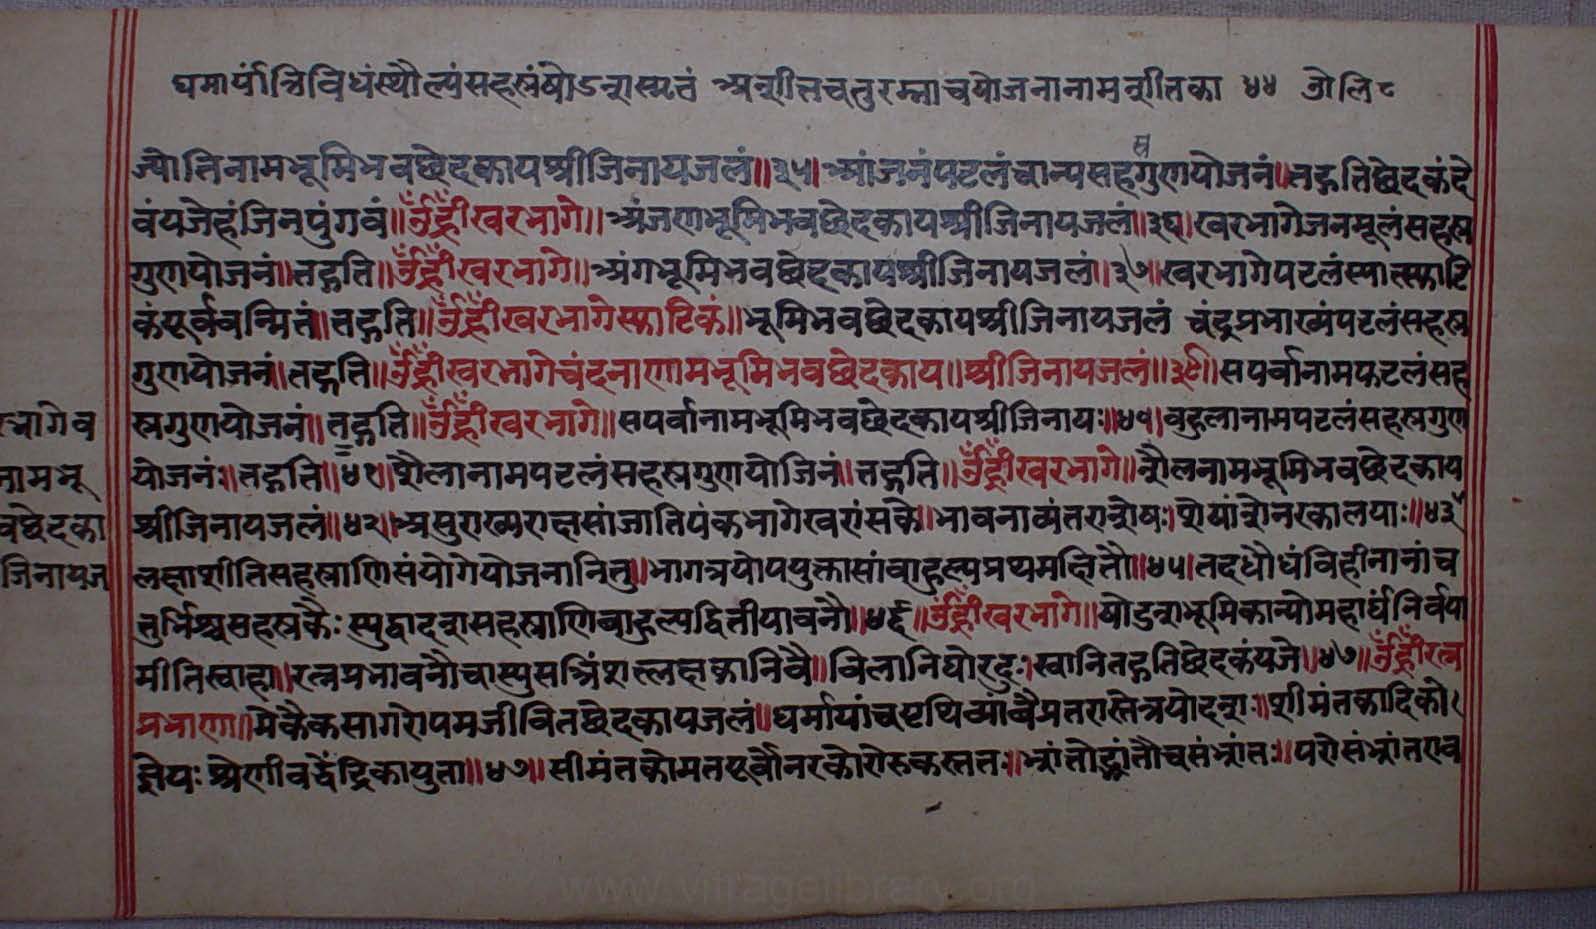 घमार्यां त्रिविधं स्थौल्यं सहस्रं षोऽशस्मृतं अशीतचतुरस्राचयोजनानामशीतिका ४४ ओलि ८
ज्योतिनामभूमिभवछेदकायश्रीजिनायजलं॥३५।आंजनंपटलंचान्यसहगुणयोजनं॥तद्गतिछेदकंदे
स्र
वंयजेहंजिनपुंगवं॥ॐह्रीँखरभागे॥अंजणभूमिभवछेदकायश्रीजिनायजलं॥३६।खरभागेजनमूलंसहस्र
गुणयोजनं॥तद्गति॥ॐह्रीँखरभागे॥अंगभूमिभवछेदकायश्रीजिनायजलं॥३७॥खरभागेपटलंस्यात्स्फाटि
कंपूर्ववन्मितं॥तद्गति॥ॐह्रीँखरभागेस्फाटिकं॥भूमिभवछेदकायश्रीजिनायजलं चंद्रप्रभाख्यंपटलंसहस्र
गुणयोजनं॥तद्गति॥ॐह्रीँखरभागेचंदनाणामभूमिभवछेदकाय॥श्रीजिनायजलं॥३९॥सपर्वानामपटलंसह
स्रगुणयोजनं॥तद्गति॥ॐह्रीँखरभागे॥सपर्वानामभूमिभवछेदकायश्रीजिनायः॥४१।बहुलानामपटलंसहस्रगुण
योजनं॥तद्गति॥४१।शैलानामपटलंसहस्रगुणयोजिनं॥तद्गति॥ॐह्रीँखरभागे॥शैलनामभूमिभवछेदकाय
श्रीजिनायजलं॥४२।असुराख्यराक्षसांजातिपंकभागेखरांसके॥भावनाव्यंतराशेषः।शेयांशेनरकालयाः॥४३
लक्षाशीतिसहस्राणिसंयोगेयोजनानितु॥भागत्रयोपयुक्तासांबाहुल्यप्रथमक्षितौ॥४५।तदधौधंविहीनानांच
तुर्भिश्चसहस्रकैः स्युद्वादशसहस्राणिबाहुल्यद्वितीयावनौ॥४६॥ॐह्रीँखरभागे॥षोडशभूमिकान्योमहार्घंनिर्वपा
मीतिस्वाहा॥रत्नप्रभावनौचास्युसत्रिंशल्लक्षकानिवै॥विलानिघोरदुः।खानितद्गतिछेदकंयजे॥४७॥ॐह्रीँरत्न
प्रभाणा॥मेकैकसागरोपमजीवितछेदकायजलं॥घर्मायांचपृथिव्यांवैप्रतरास्तेत्रयोदशः॥शीमंतकादिको।
ज्ञेयः श्रेणीवद्धेंद्रिकायुता॥४७॥सीमंतकोमतपूर्वोनरकोरोरुकस्ततः॥भ्रांतोद्भ्रांतौचसंभ्रांतः॥परोसंभ्रांतएव
भागेव
नामभू
वछेदका
जिनायज
www.vitragelibrary.org